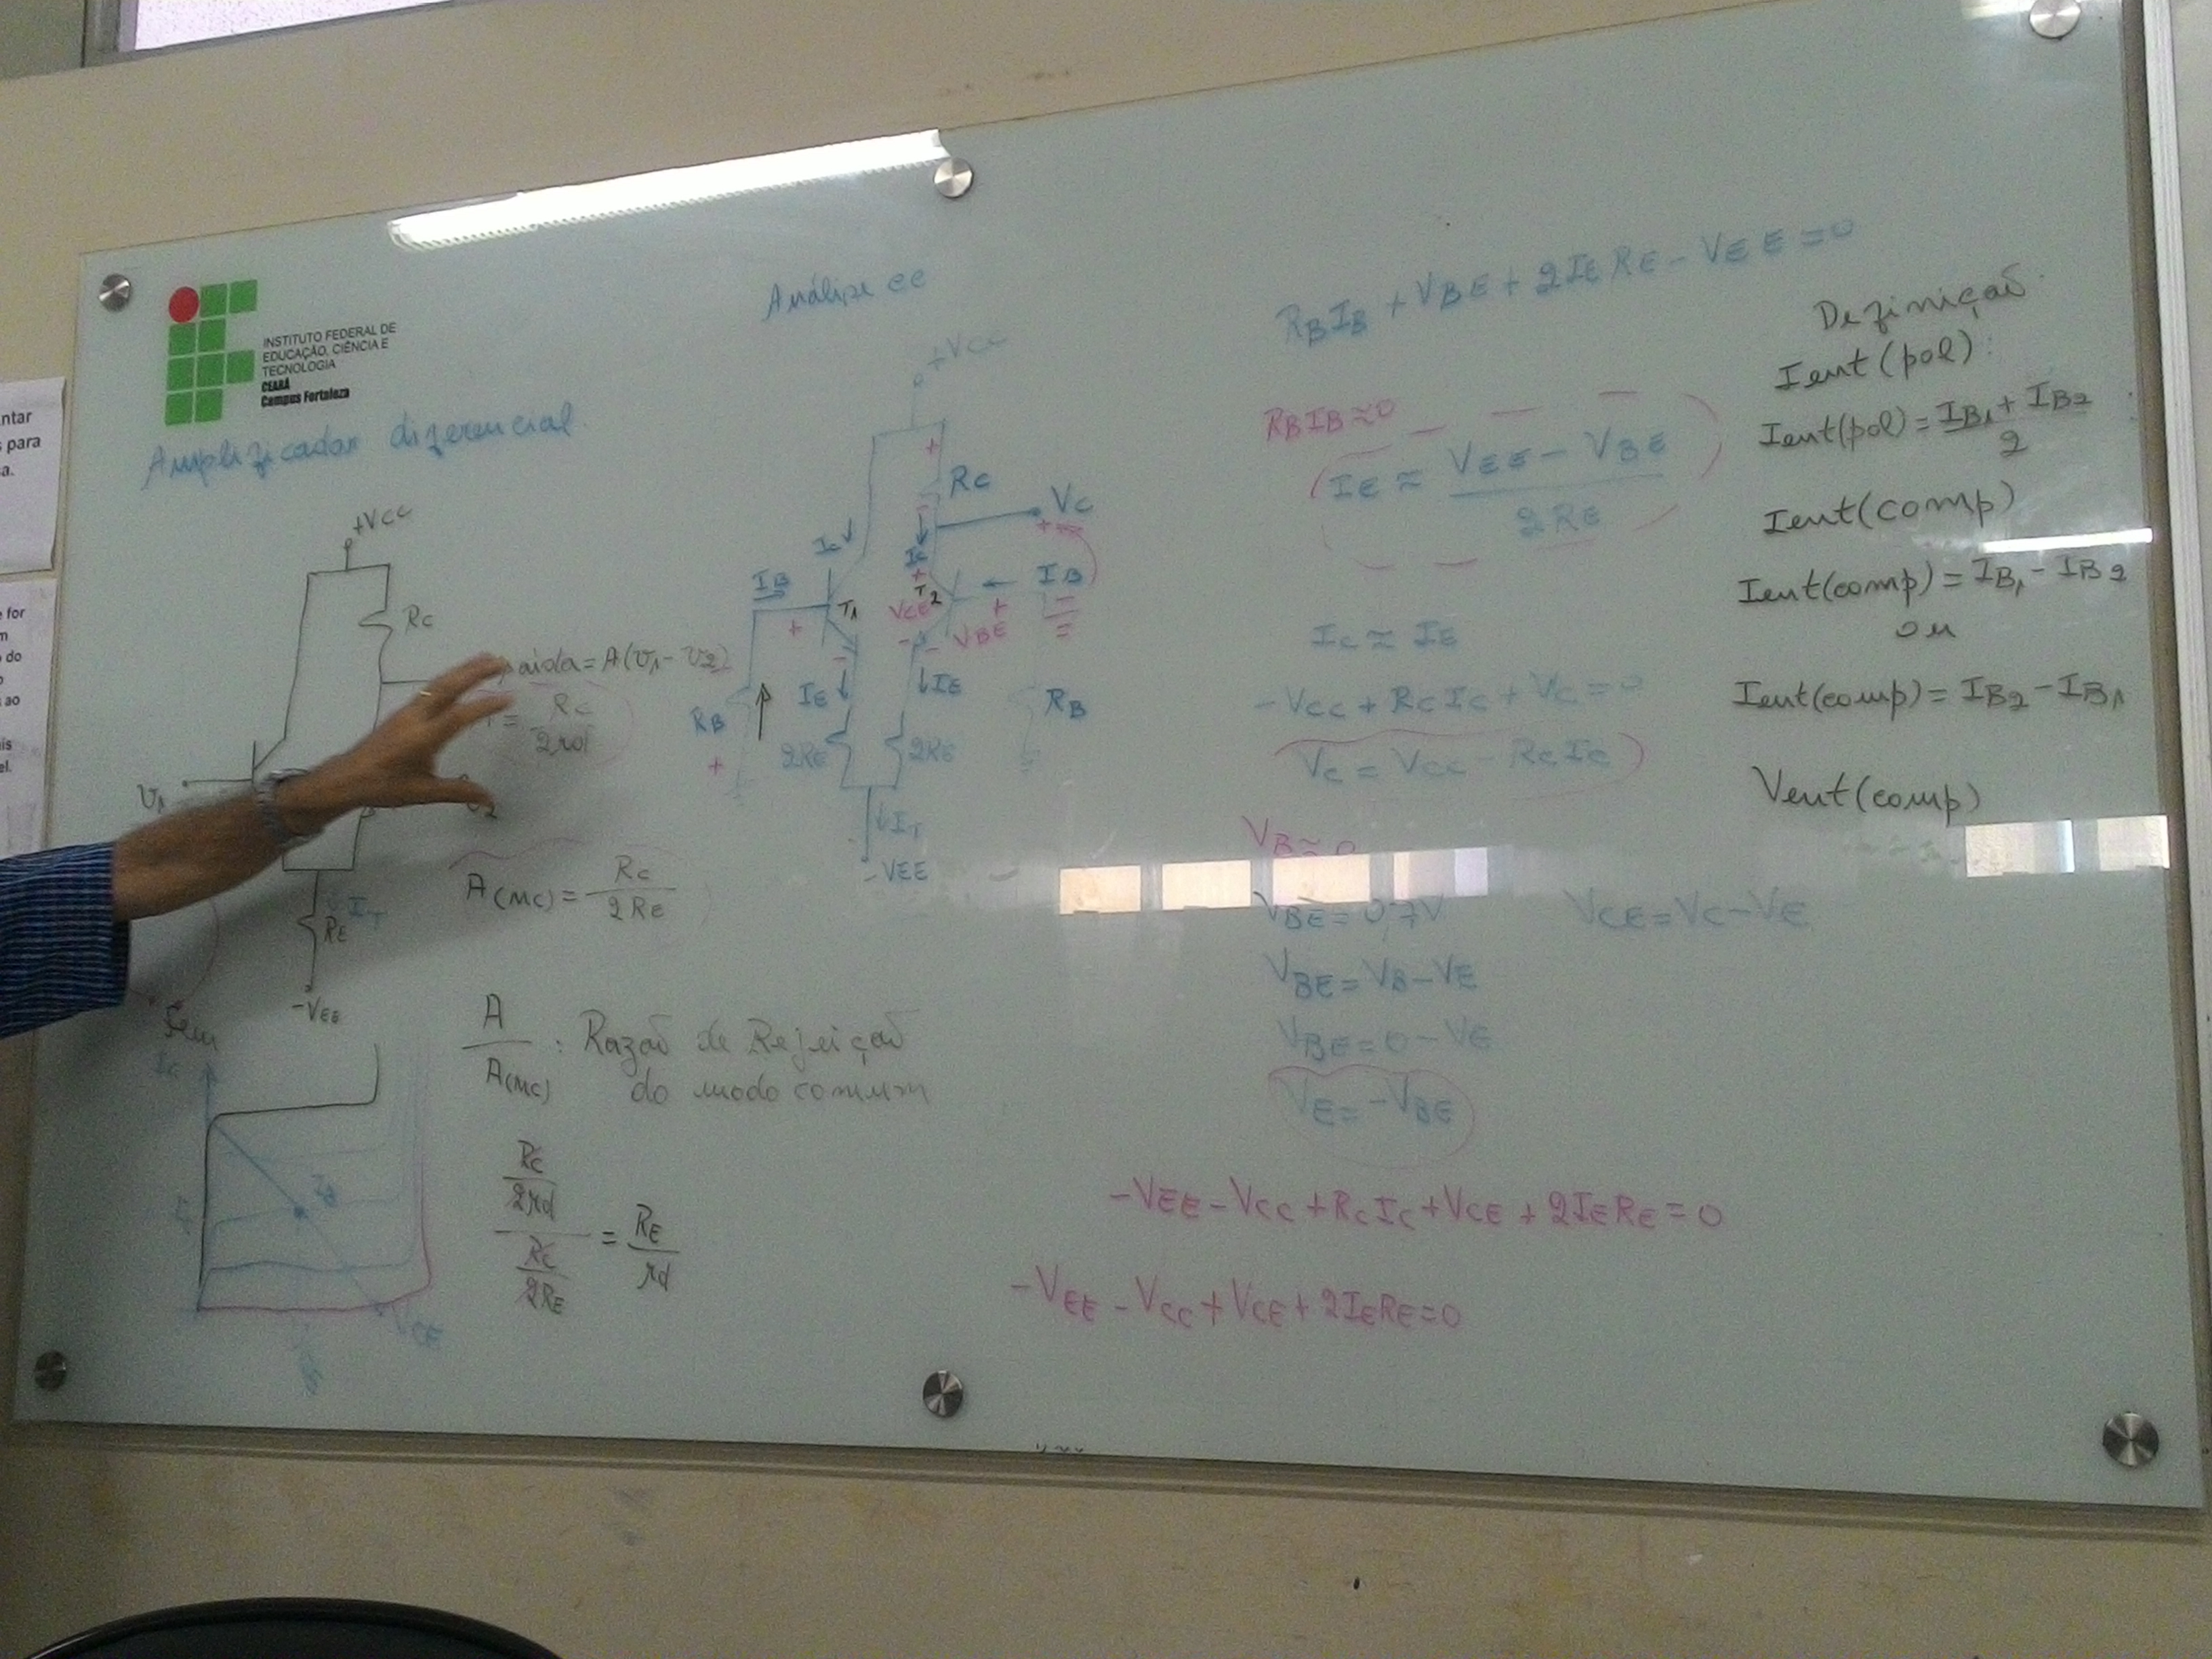 INSTITUTO FEDERAL DE
EDUCAÇÃO, CIÊNCIA E
TECNOLOGIA
CEARÁ
Campus Fortaleza
ntar
s para
a.
e for
m
o do
ao
is
el.
Amplificador diferencial
+VCC
RC
aida = A(v1 - v2)
= RC / 2rd
v1
v2
IT
RE
-VEE
A(MC) = RC / 2RE
A / A(MC) : Razão de Rejeição
do modo comum
RC/2rd / RC/2RE = RE/rd
IC
IB
CE
Análise cc
+VCC
+
RC
VC
+
IC
IC
IB
T1
T2
IB
+
VCE
VBE
+
-
-
IE
IE
RB
RB
+
2RE
2RE
IT
-VEE
RBIB + VBE + 2IERE - VEE = 0
RBIB ≈ 0
IE ≈ VEE - VBE / 2RE
IC ≈ IE
-VCC + RCIC + VC = 0
VC = VCC - RCIC
VB ≈ 0
VBE = 0,7V
VCE = VC - VE
VBE = VB - VE
VBE = 0 - VE
VE = -VBE
-VEE - VCC + RCIC + VCE + 2IERE = 0
-VEE - VCC + VCE + 2IERE = 0
Definição
Ient(pol):
Ient(pol) = IB1 + IB2 / 2
Ient(comp)
Ient(comp) = IB1 - IB2
ou
Ient(comp) = IB2 - IB1
Vent(comp)